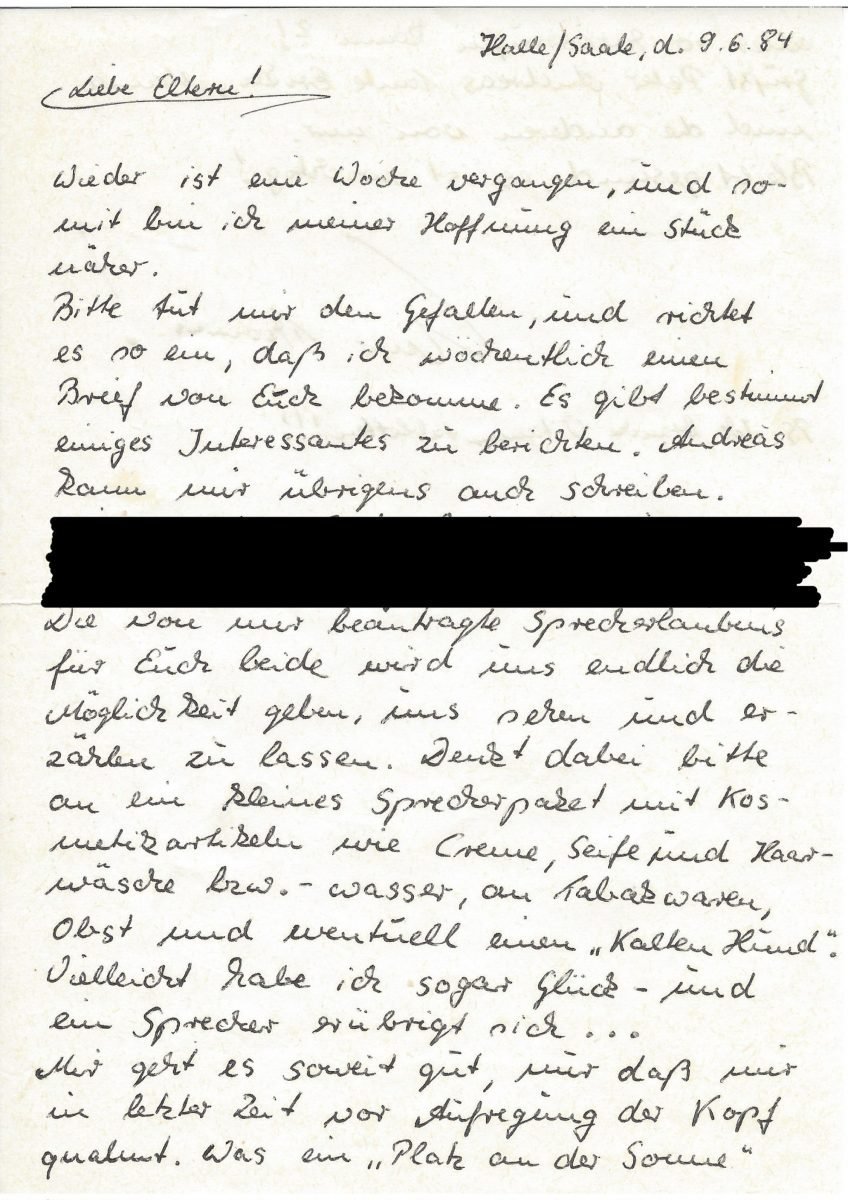 Halle/Saale, d. 9.6.84
Liebe Eltern!
Wieder ist eine Woche vergangen, und so-
mit bin ich meiner Hoffnung ein Stück
näher.
Bitte tut mir den Gefallen, und richtet
es so ein, daß ich wöchentlich einen
Brief von Euch bekomme. Es gibt bestimmt
einiges Interessantes zu berichten. Andreas
kann mir übrigens auch schreiben.
Die von mir beantragte Sprecherlaubnis
für Euch beide wird uns endlich die
Möglichkeit geben, uns sehen und er-
zählen zu lassen. Denkt dabei bitte
an ein kleines Sprecherpaket mit Kos-
metikartikeln wie Creme, Seife und Haar-
wäsche bzw. - wasser, an Tabakwaren,
Obst und eventuell einen „Kalten Hund".
Vielleicht habe ich sogar Glück - und
ein Sprecher erübrigt sich ...
Mir geht es soweit gut, nur daß mir
in letzter Zeit vor Aufregung der Kopf
qualmt. Was ein „Platz an der Sonne"